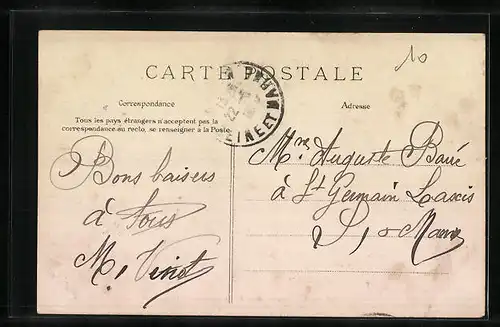 10
CARTE POSTALE
Correspondance
Adresse
Tous les pays étrangers n'acceptent pas la
correspondance au recto, se renseigner à la Poste.
22
SEINE ET MARNE
Bons baisers
à Tous
M. Vinot
Mr Auguste Baué
à St Germain Laxis
S, o Marne